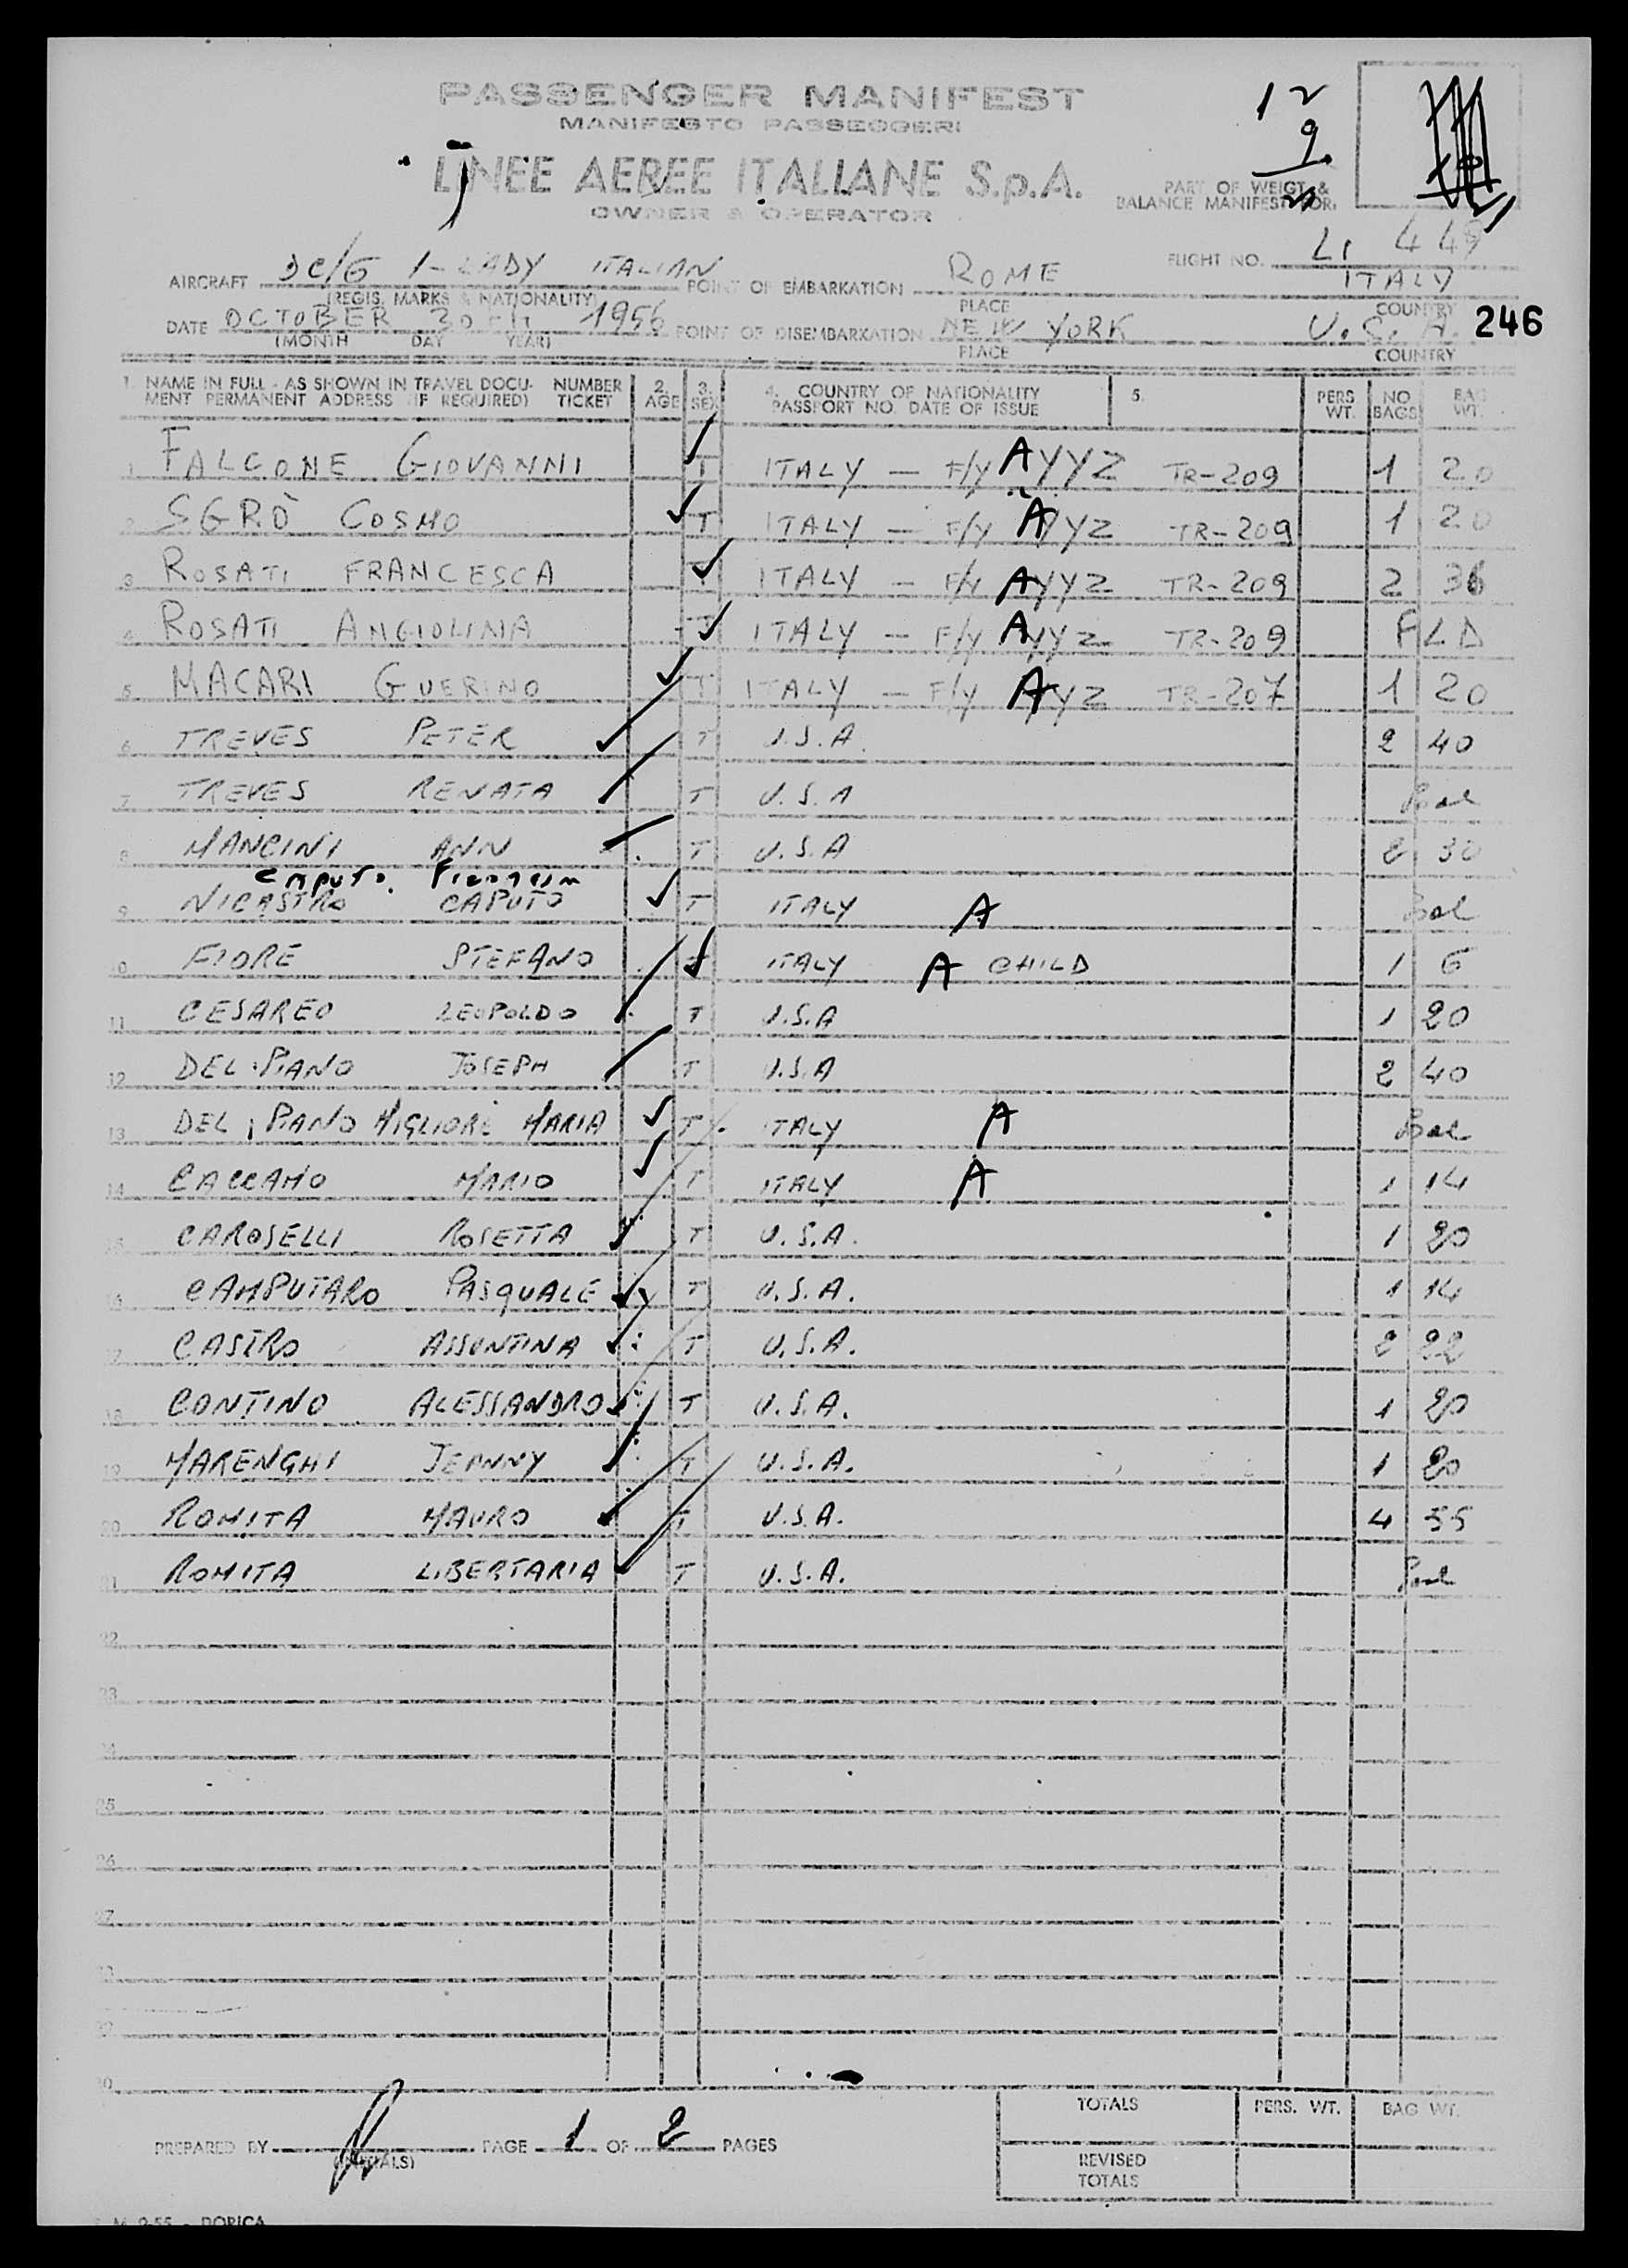 PASSENGER MANIFEST
MANIFESTO PASSEGGERI
LINEE AEREE ITALIANE S.p.A.
OWNER & OPERATOR
12
9
21
PART OF WEIGT &
BALANCE MANIFEST FOR:
FLIGHT NO. LI 449
AIRCRAFT DC/6 I-LADY ITALIAN POINT OF EMBARKATION ROME ITALY
(REGIS. MARKS & NATIONALITY) PLACE COUNTRY
DATE OCTOBER 30TH 1956 POINT OF DISEMBARKATION NEW YORK U.S.A. 246
(MONTH DAY YEAR) PLACE COUNTRY
1. NAME IN FULL - AS SHOWN IN TRAVEL DOCU- NUMBER 2. 3. 4. COUNTRY OF NATIONALITY 5. PERS NO BAG
MENT PERMANENT ADDRESS (IF REQUIRED) TICKET AGE SEX PASSPORT NO. DATE OF ISSUE WT. BAGS WT.
1 FALCONE GIOVANNI T ITALY - F/Y AYYZ TR-209 1 20
2 SGRÒ COSMO T ITALY - F/Y AYYZ TR-209 1 20
3 ROSATI FRANCESCA T ITALY - F/Y AYYZ TR-209 2 36
4 ROSATI ANGIOLINA T ITALY - F/Y AYYZ TR-209 FLD
5 MACARI GUERINO T ITALY - F/Y AYZ TR-207 1 20
6 TREVES PETER T U.S.A. 2 40
7 TREVES RENATA T U.S.A
8 MANCINI ANN T U.S.A 2 30
CAPUTO
9 NICASTRO CAPUTO T ITALY A
10 FIORE STEFANO ITALY A CHILD 1 6
11 CESAREO LEOPOLDO T U.S.A 1 20
12 DEL PIANO JOSEPH T U.S.A 2 40
13 DEL PIANO MIGLIORE MARIA T ITALY A
14 CACCAMO MARIO T ITALY A 1 14
15 CAROSELLI ROSETTA T U.S.A. 1 20
16 CAMPUTARO PASQUALE T U.S.A. 1 14
17 CASTRO ASSUNTINA T U.S.A. 2 22
18 CONTINO ALESSANDRO T U.S.A. 1 20
19 MARENGHI JENNY T U.S.A. 1 20
20 ROMITA MAURO T U.S.A. 4 55
21 ROMITA LIBERTARIA T U.S.A.
22
23
24
25
26
27
28
29
30
TOTALS PERS. WT. BAG WT.
PREPARED BY PAGE 1 OF 2 PAGES
(INITIALS)
REVISED
TOTALS
M 9-55 - DORICA